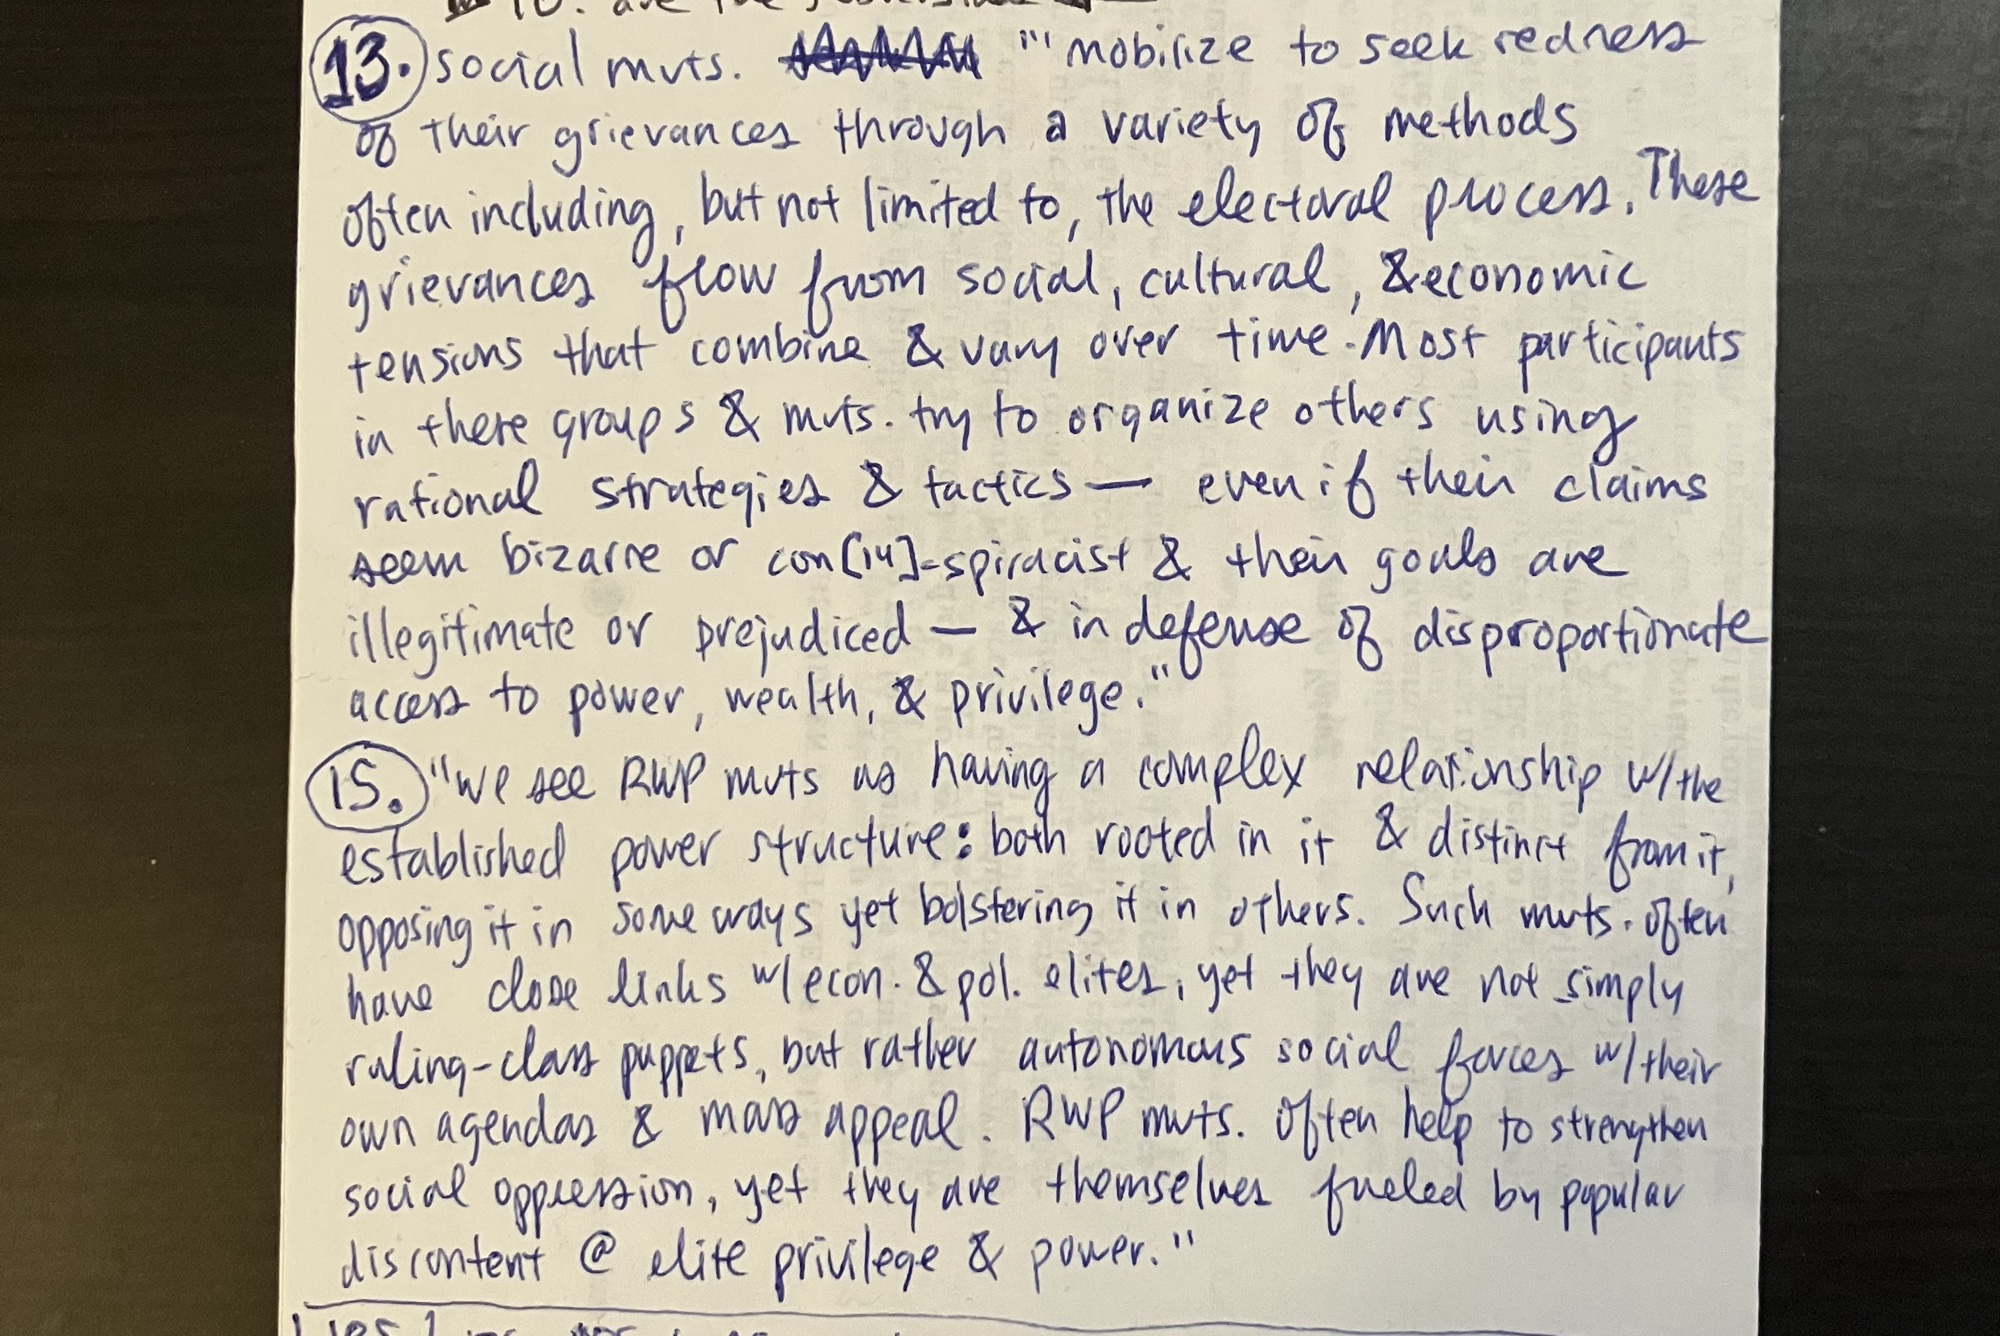 13. social mvts. "'mobilize to seek redress
of their grievances through a variety of methods
often including, but not limited to, the electoral process. These
grievances flow from social, cultural, & economic
tensions that combine & vary over time. Most participants
in these groups & mvts. try to organize others using
rational strategies & tactics — even if their claims
seem bizarre or con[14]-spiracist & their goals are
illegitimate or prejudiced — & in defense of disproportionate
access to power, wealth, & privilege."
15. "We see RWP mvts as having a complex relationship w/the
established power structure: both rooted in it & distinct from it,
opposing it in some ways yet bolstering it in others. Such mvts. often
have close links w/econ. & pol. elites, yet they are not simply
ruling-class puppets, but rather autonomous social forces w/their
own agendas & mass appeal. RWP mvts. often help to strengthen
social oppression, yet they are themselves fueled by popular
discontent @ elite privilege & power."